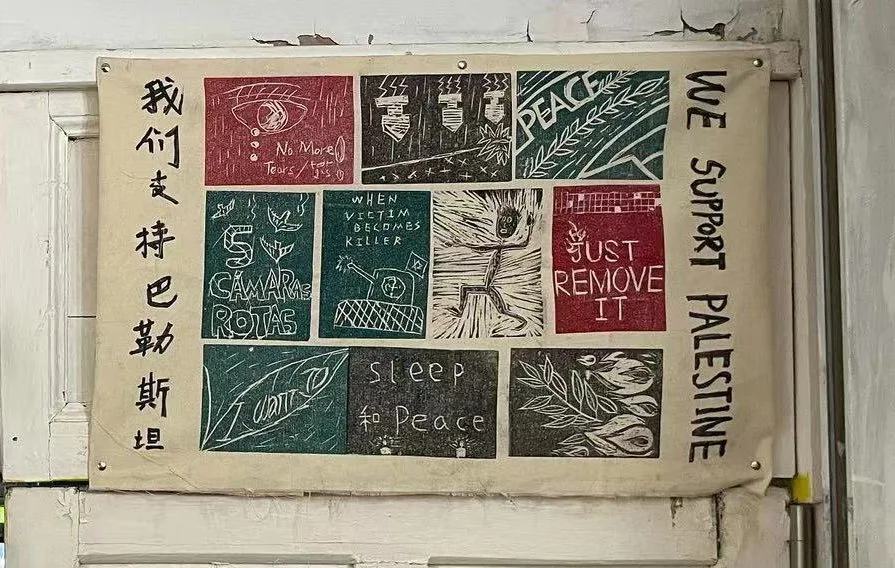 我们支持巴勒斯坦
No More
Tears/
PEACE
5
CÁMARAS
ROTAS
WHEN
VICTIM
BECOMES
KILLER
JUST
REMOVE
IT
I want
sleep
和 Peace
WE SUPPORT PALESTINE